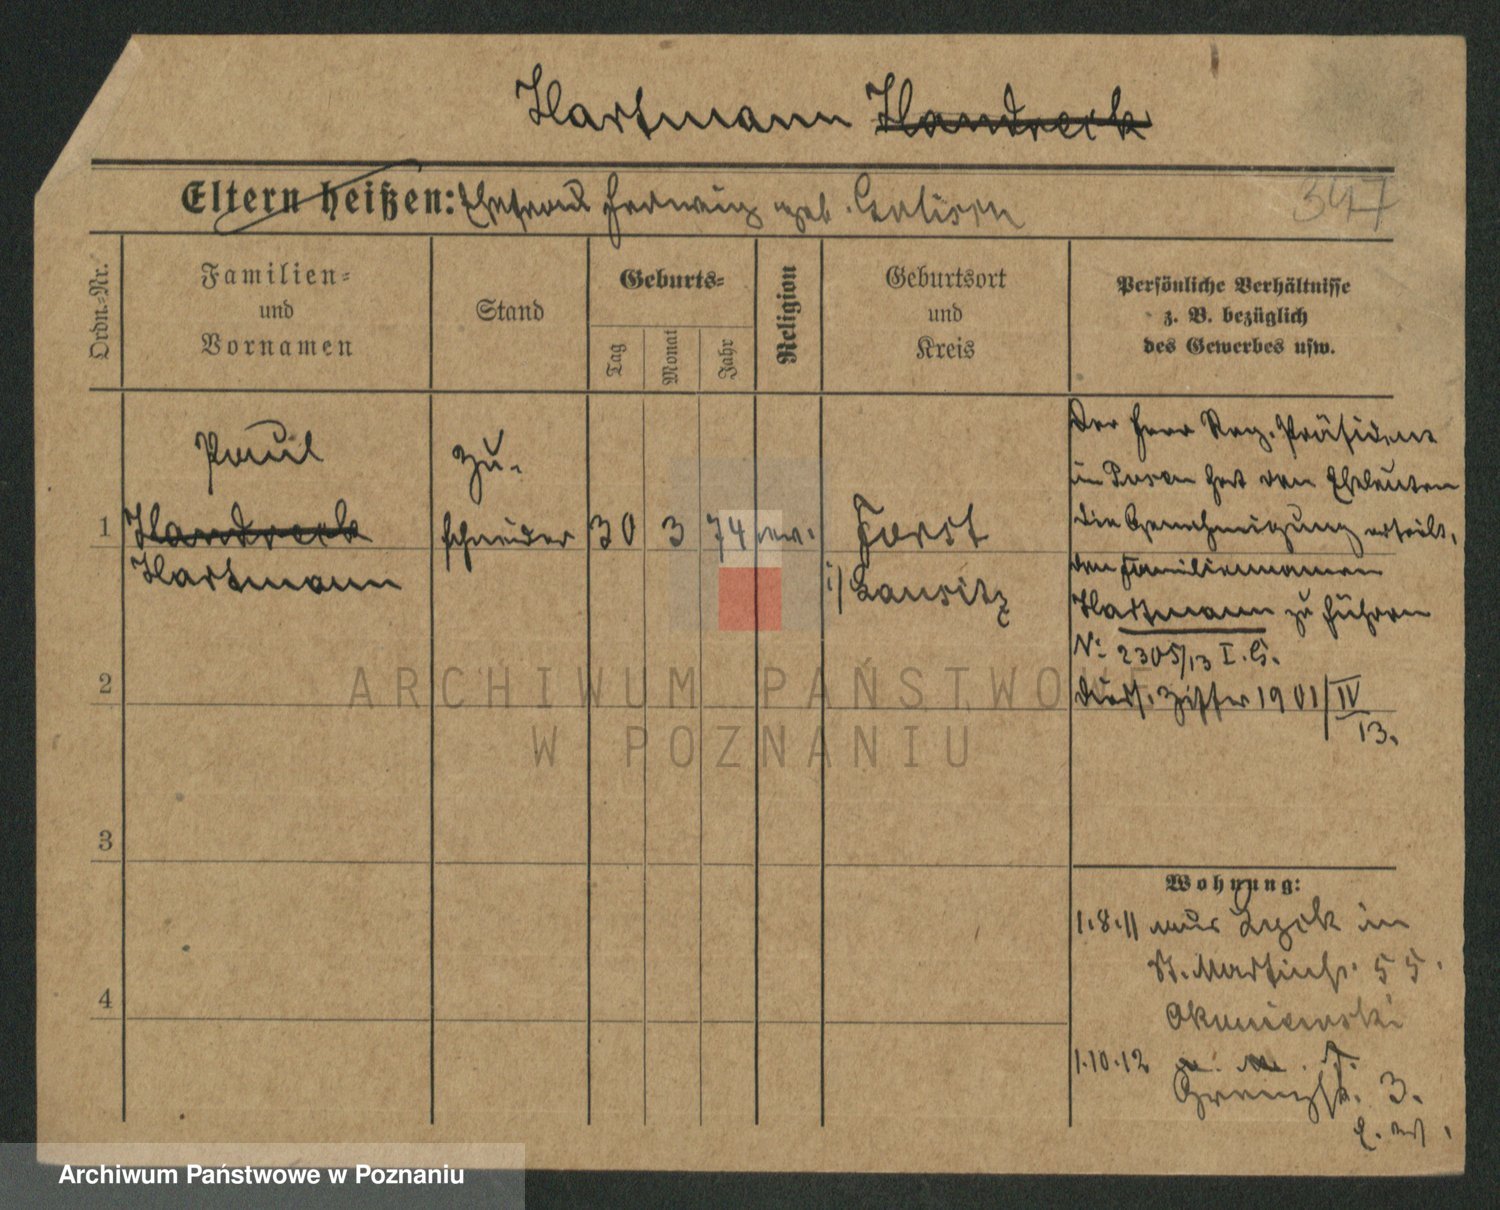 Hartmann Handreck
347
Eltern heißen: Ehefrau Hedwig geb.
Ordn.-Nr.
Familien-
und
Vornamen
Stand
Geburts-
Tag
Monat
Jahr
Religion
Geburtsort
und
Kreis
Persönliche Verhältnisse
z. B. bezüglich
des Gewerbes usw.
1
Paul
Handreck
Hartmann
Zu-
schneider
30 3 74 ev.
Forst
i/ Lausitz
Der Herr Reg. Präsident
in Posen hat den Eheleuten
die Genehmigung erteilt,
den Familiennamen
Hartmann zu führen
No 2305/13 I. G.
Ziffer 1901/IV
13.
2
3
4
Wohnung:
1.8.11 aus in
St. Martinstr. 55.
1.10.12
Grenzstr. 3.
ARCHIWUM PAŃSTWO
W POZNANIU
Archiwum Państwowe w Poznaniu